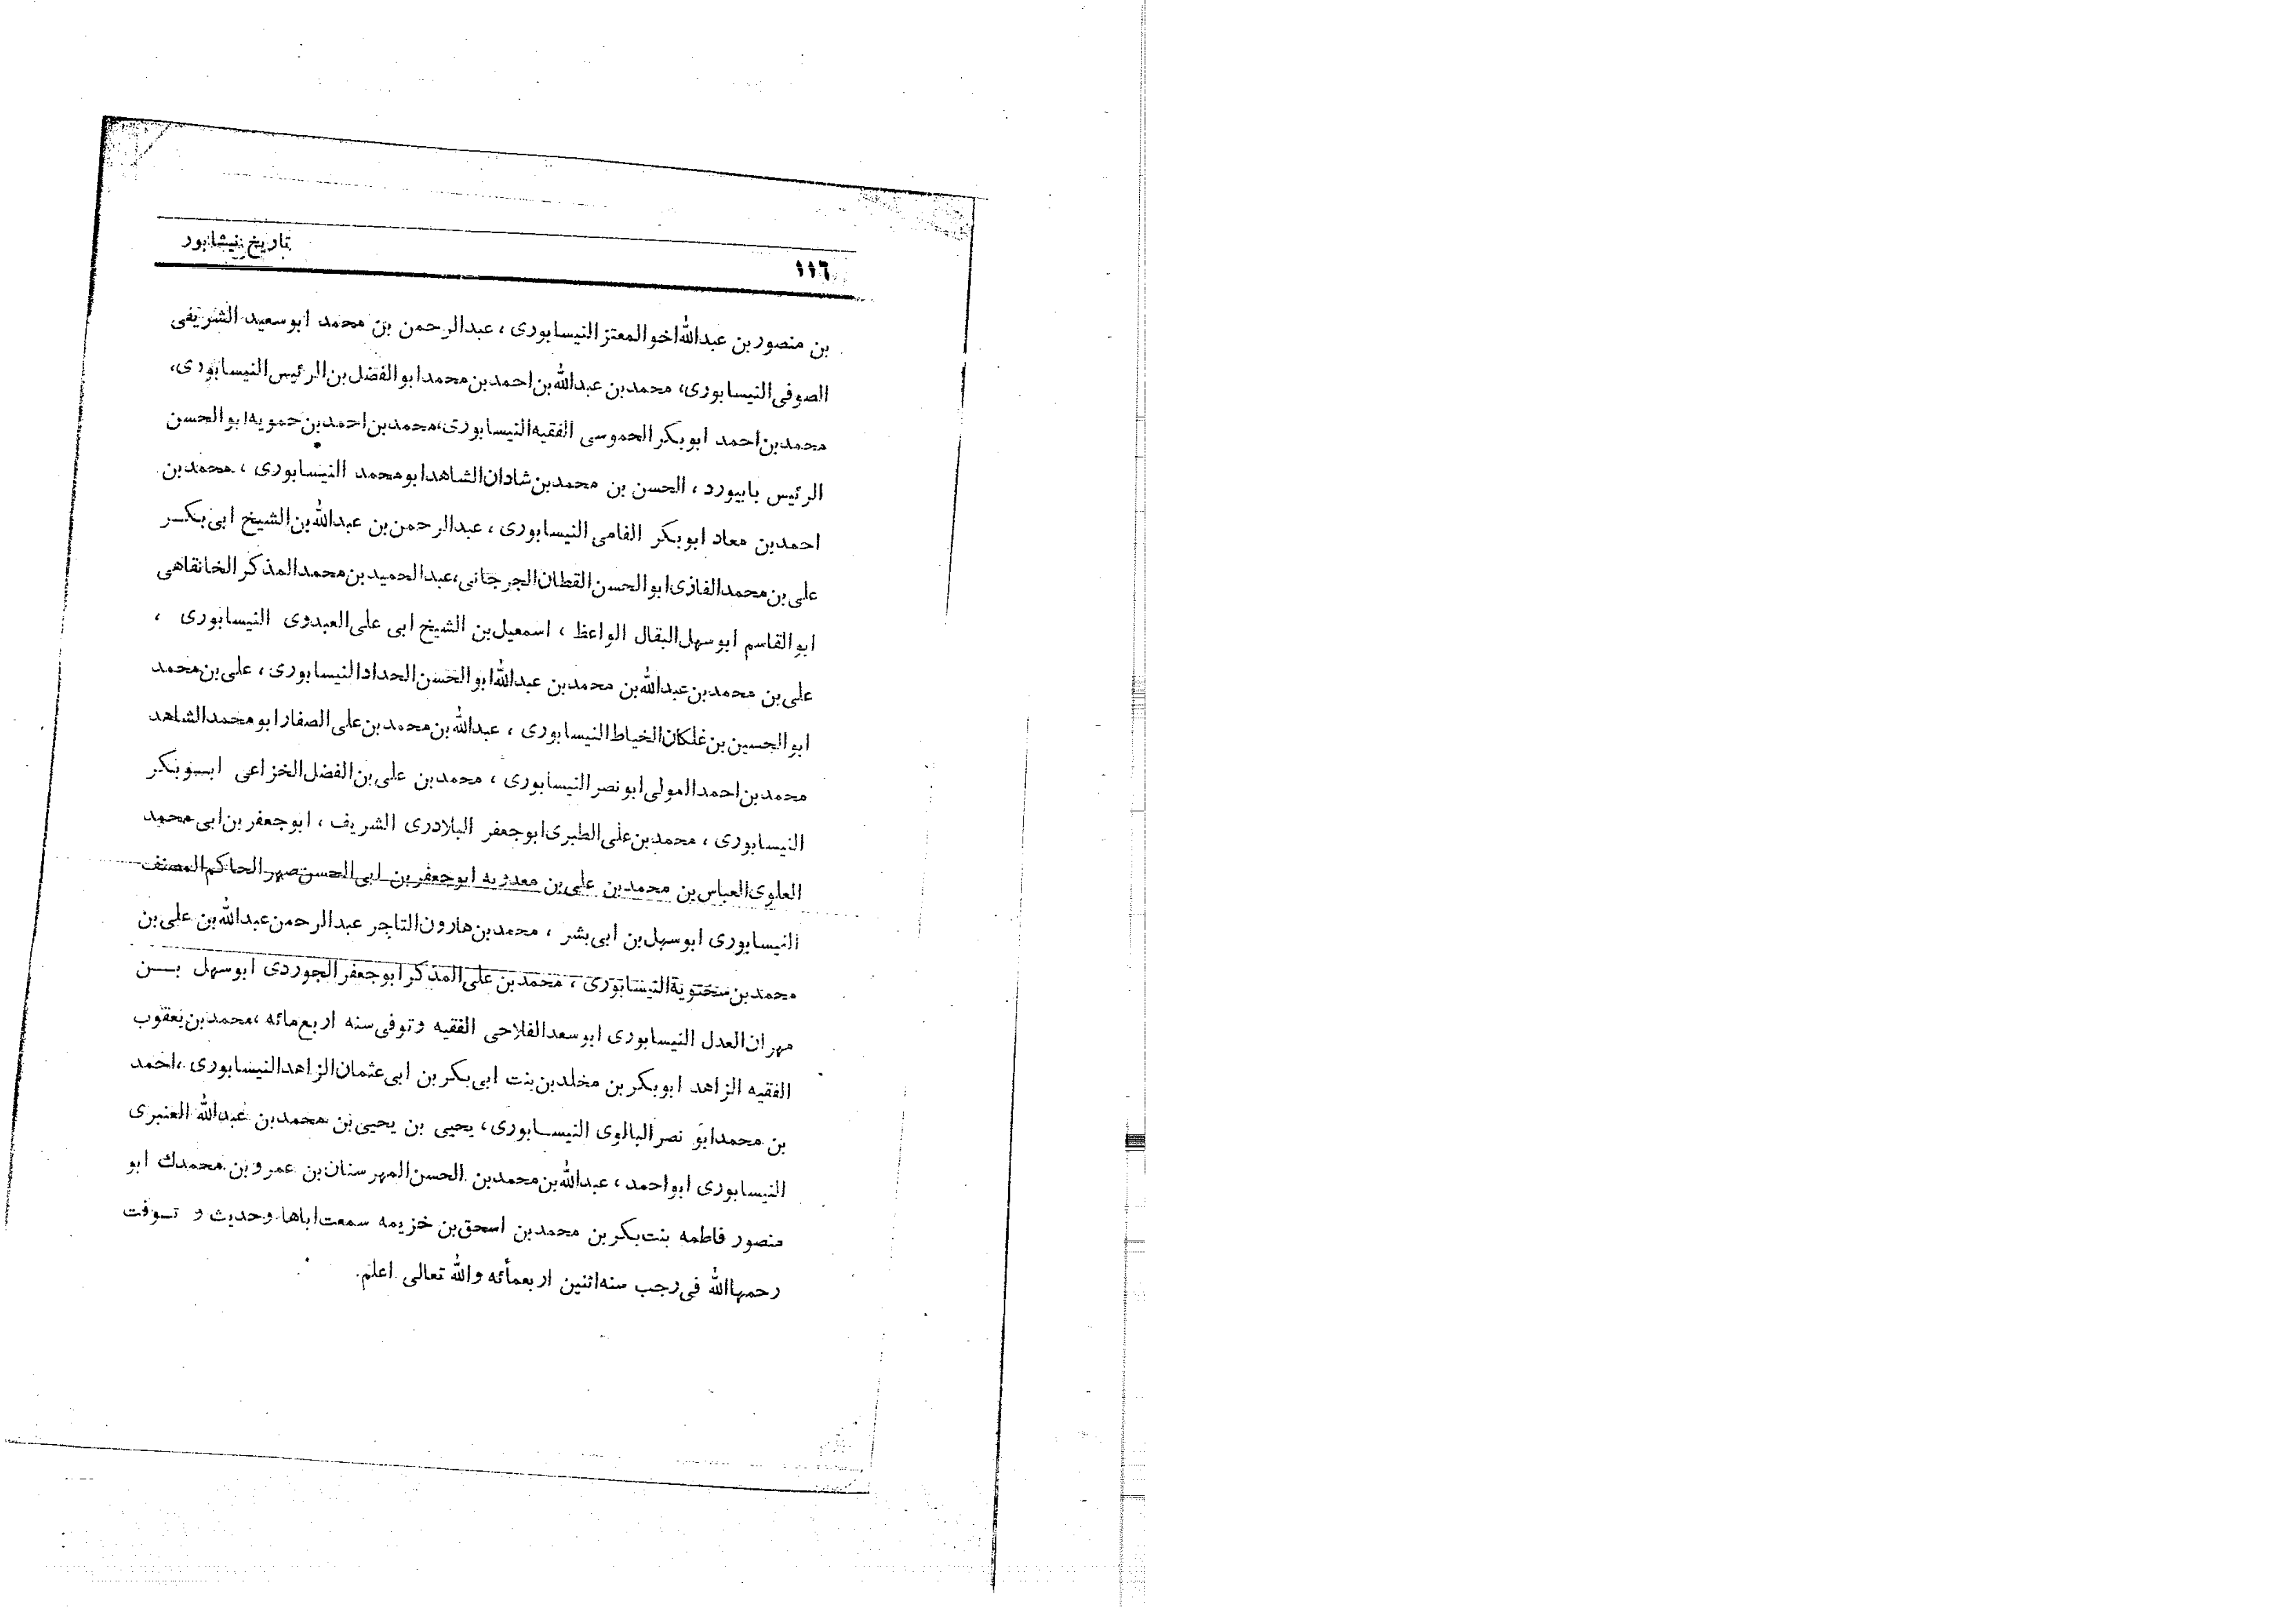 ١١٦
تاريخ نيشابور
بن منصور بن عبدالله اخو المعتز النيسابورى ، عبدالرحمن بن محمد ابوسعيد الشريفى
الصوفى النيسابورى، محمد بن عبدالله بن احمد بن محمد ابوالفضل بن الرئيس النيسابورى،
محمد بن احمد ابوبكر الحموسى الفقيه النيسابورى، محمد بن احمد بن حمويه ابوالحسن
الرئيس بابيورد ، الحسن بن محمد بن شادان الشاهد ابومحمد النيسابورى ، محمد بن
احمد بن معاد ابوبكر الفامى النيسابورى ، عبدالرحمن بن عبدالله بن الشيخ ابى بكر
على بن محمد الفازى ابوالحسن القطان الجرجانى، عبدالحميد بن محمد المذكر الخانقاهى
ابوالقاسم ابوسهل البقال الواعظ ، اسمعيل بن الشيخ ابى على العبدوى النيسابورى ،
على بن محمد بن عبدالله بن محمد بن عبدالله ابوالحسن الحداد النيسابورى ، على بن محمد
ابوالحسين بن غلكان الخياط النيسابورى ، عبدالله بن محمد بن على الصفار ابومحمد الشاهد
محمد بن احمد المولى ابونصر النيسابورى ، محمد بن على بن الفضل الخزاعى ابوبكر
النيسابورى ، محمد بن على الطبرى ابوجعفر البلادرى الشريف ، ابوجعفر بن ابى محمد
العلوى العباس بن محمد بن على بن معدويه ابوجعفر بن ابى الحسن صهر الحاكم المصنف
النيسابورى ابوسهل بن ابى بشر ، محمد بن هارون التاجر عبدالرحمن عبدالله بن على بن
محمد بن سختوية النيسابورى ، محمد بن على المذكر ابوجعفر الجوردى ابوسهل بن
مهران العدل النيسابورى ابوسعد الفلاحى الفقيه وتوفى سنه اربع مائه ، محمد بن يعقوب
الفقيه الزاهد ابوبكر بن مخلد بن بنت ابى بكر بن ابى عثمان الزاهد النيسابورى ، احمد
بن محمد ابو نصر البالوى النيسابورى، يحيى بن يحيى بن محمد بن عبدالله العنبرى
النيسابورى ابواحمد ، عبدالله بن محمد بن الحسن المهرسنان بن عمرو بن محمدك ابو
منصور فاطمه بنت بكر بن محمد بن اسحق بن خزيمه سمعت اباها وحديث و توفت
رحمها الله فى رجب سنه اثنين اربعمأئه والله تعالى اعلم.